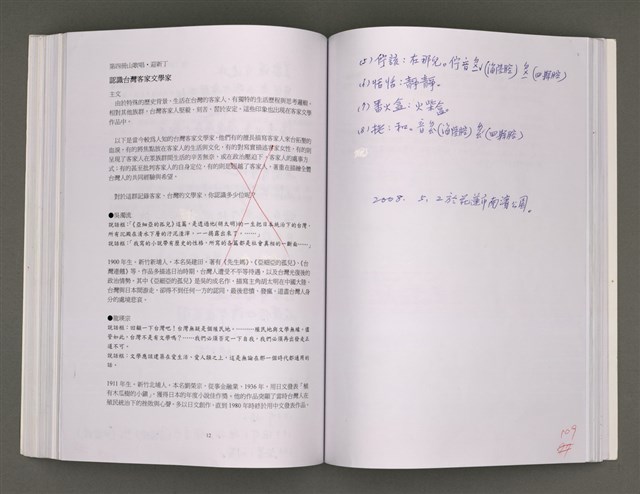 第四冊山歌唄‧迎新丁
認識台灣客家文學家
主文
由於特殊的歷史背景，生活在台灣的客家人，有獨特的生活歷程與思考邏輯，
相對其他族群，台灣客家人堅毅、刻苦、習於安定，這些印象也出現在客家文學
作品中。
以下是當今較為人知的台灣客家文學家，他們有的擅長描寫客家人來台拓墾的
血淚，有的將焦點放在客家人的生活與文化，有的對寫實描述客家女性，有的則
呈現了客家人在眾族群間生活的辛苦無奈，或在政治壓迫下，客家人的處事方
式；有的甚至批判客家人的自身定位，有的則超越了客家人，著重在描繪全體
台灣人的共同經驗與希望。
對於這群記錄客家、台灣的文學家，你認識多少位呢？
●吳濁流
說話框：「《亞細亞的孤兒》這篇，是透過他(胡太明)的一生把日本統治下的台灣，
所有沉澱在清水下層的汙泥渣滓，一一揭露出來了。……」
說話框：「我寫的小說帶有歷史的性格，所寫的各篇都是社會真相的一斷面……」
1900 年生，新竹新埔人，本名吳建田。著有《先生媽》、《亞細亞的孤兒》、《台
灣連翹》等，作品多描述日治時期，台灣人遭受不平等待遇，以及台灣光復後的
政治情勢。其中《亞細亞的孤兒》是吳的成名作，描寫主角胡太明在中國大陸、
台灣與日本間游走，卻得不到任何一方的認同，最後悲憤、發瘋，道盡台灣人身
分的處境悲哀。
●龍瑛宗
說話框：回顧一下台灣吧！台灣無疑是個殖民地，………殖民地與文學無緣，儘
管如此，台灣不是有文學嗎？……我們必須否定一下自我，我們必須再出發走正
道不可。
說話框：文學應該建築在愛生活，愛人類之上，這是無論在那一個時代都適用的
話。
1911 年生，新竹北埔人，本名劉榮宗，從事金融業。1936 年，用日文發表「植
有木瓜樹的小鎮」，獲得日本的年度小說佳作獎。他的作品突顯了當時台灣人在
殖民統治下的挫敗與心聲。多以日文創作，直到 1980 年時終於用中文發表作品。
12
(5) 佇該：在那兒。佇音(海陸腔)(四縣腔)
(6) 恬恬：靜靜。
(7) 番火盒：火柴盒。
(8) 㧡：和。音(海陸腔)(四縣腔)
2008. 5. 2 於花蓮市南濱公園。
109